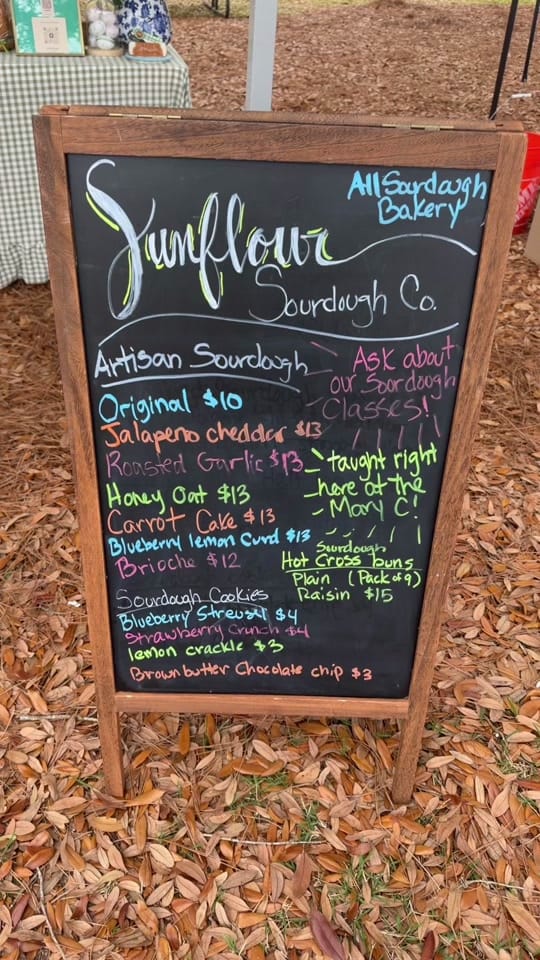 All Sourdough
Bakery
Sunflour
Sourdough Co.
Artisan Sourdough
Original $10
Jalapeno cheddar $13
Roasted Garlic $13
Honey Oat $13
Carrot Cake $13
Blueberry lemon Curd $13
Brioche $12
Sourdough Cookies
Blueberry Streusel $4
Strawberry Crunch $4
lemon crackle $3
Brown butter Chocolate chip $3
Ask about
our Sourdough
Classes!
taught right
here at the
Mary C!
Sourdough
Hot Cross buns
Plain (Pack of 9)
Raisin $15